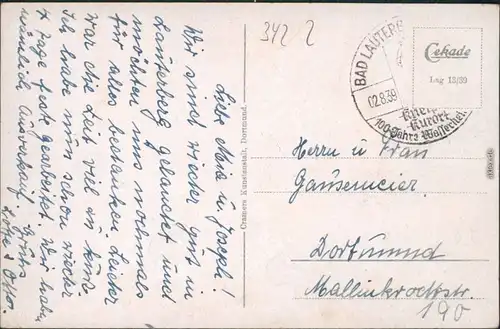 342 2
BAD LAUTERB
02.8.39
Kneip
Kurort
100 Jahre Wasserheil
Cekade
Lag 12/39
Liebe Maria u Joseph!
Wir sind wieder gut in
Lauterberg gelandet und
möchten uns nochmals
für alles bedanken. Leider
war die Zeit viel zu kurz.
Ich habe nun schon wieder
4 Tage fest gearbeitet. Wir haben
nämlich Ausverkauf. Gruss
Lotte u Otto.
Cramers Kunstanstalt, Dortmund.
Herrn u Frau
Gausemeier.
Dortmund
Mallinkrodtstr.
190